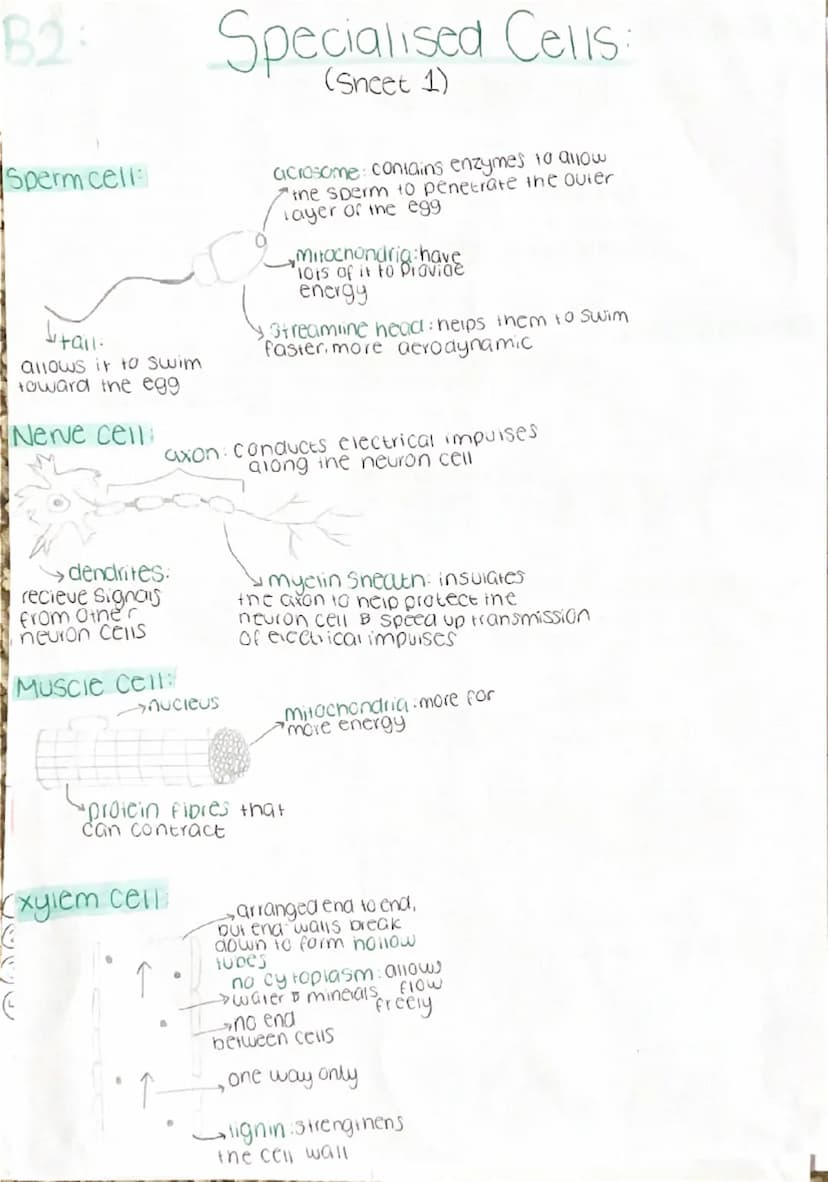 B2:
Specialised Cells:
(Sheet 1)
Sperm cell:
acrosome: contains enzymes to allow
the sperm to penetrate the outer
layer of the egg
mitochondria: have
lots of it to provide
energy
streamline head: helps them to swim
faster, more aerodynamic
tail:
allows it to swim
toward the egg
Nerve cell:
axon: conducts electrical impulses
along the neuron cell
dendrites:
recieve signals
from other
neuron cells
myelin sheath: insulates
the axon to help protect the
neuron cell & speed up transmission
of electrical impulses
Muscle cell:
nucleus
mitochondria: more for
more energy
protein fibres that
can contract
xylem cell:
arranged end to end,
but end walls break
down to form hollow
tubes
no cytoplasm: allows
water & minerals flow
freely
no end
between cells
one way only
lignin: strengthens
the cell wall